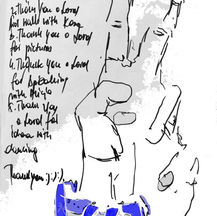 2. Thank you o Lord
for walk with Kong
3. Thank you o Lord
for pictures
4. Thank you o Lord
for
with
5. Thank you
o Lord for
idea with
cleaning
Thank you